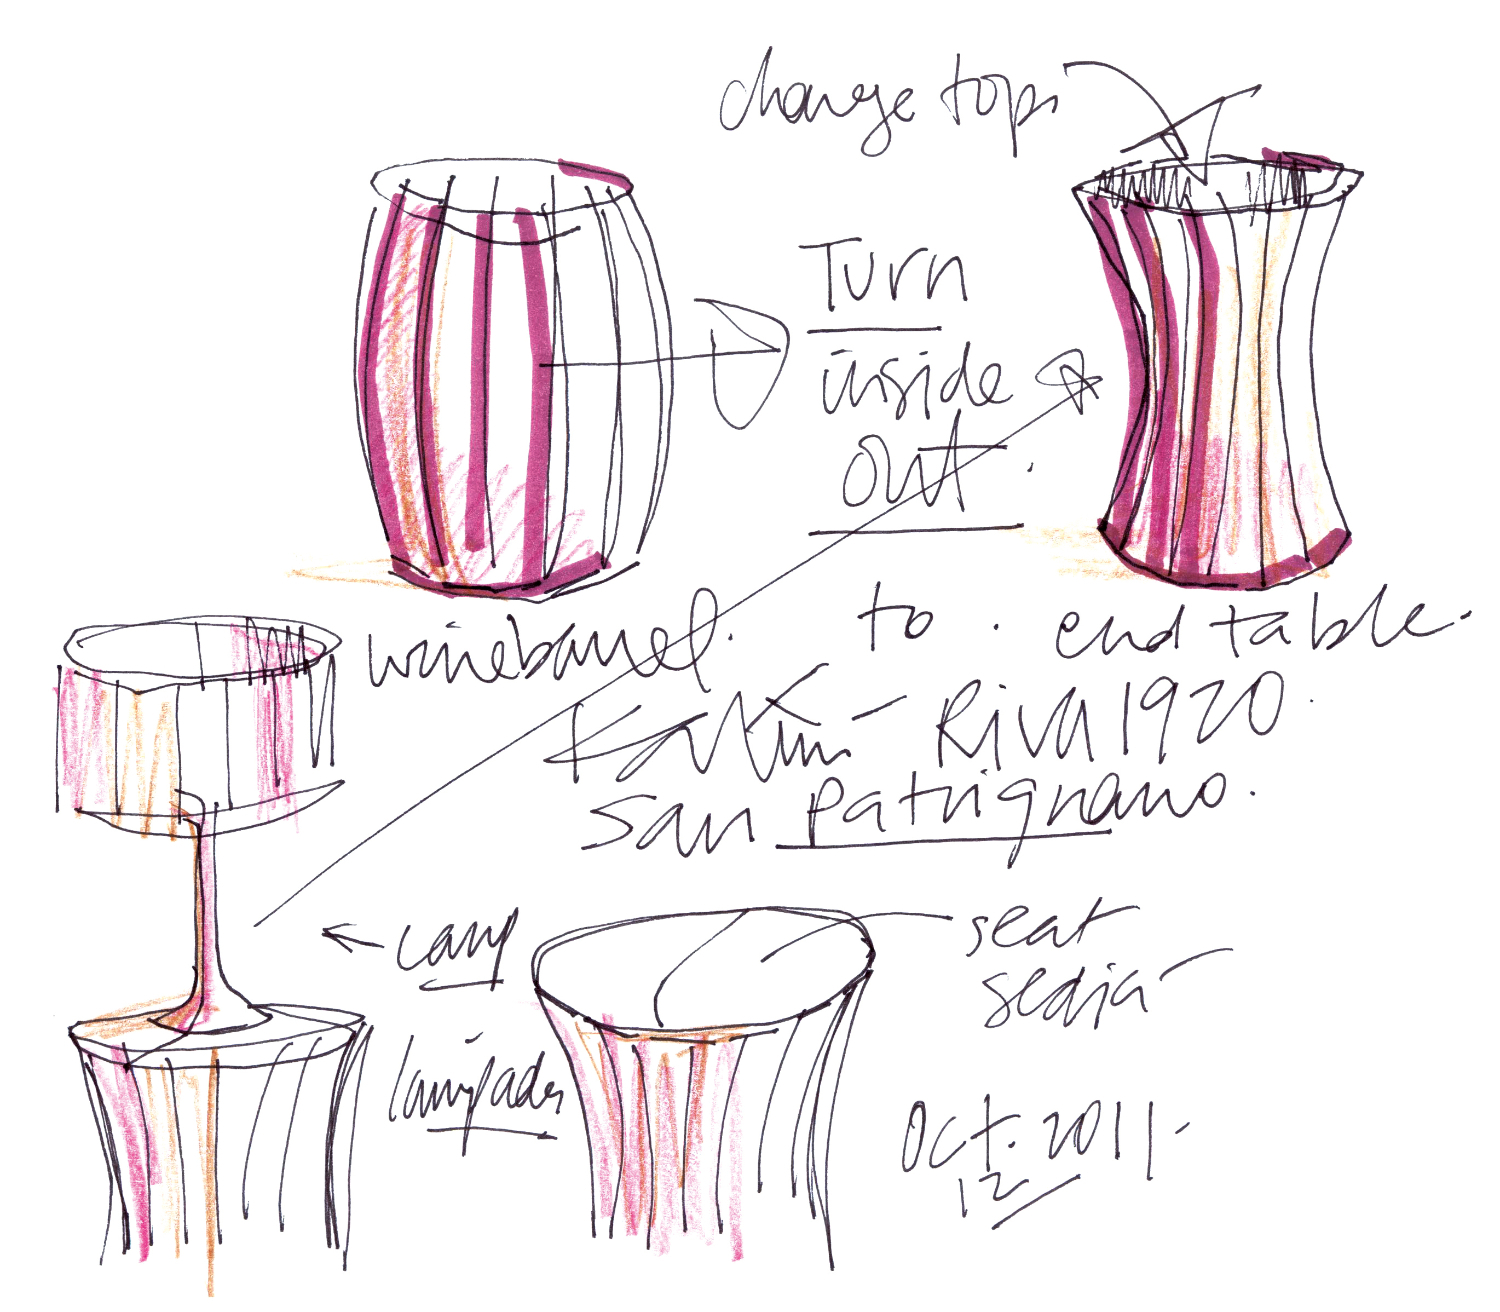 change tops
Turn
inside
out.
winebarrel. to. end table.
Karim - Riva 1920.
San Patrignano.
lamp
seat
sedia
lampada
Oct. 2011.
12